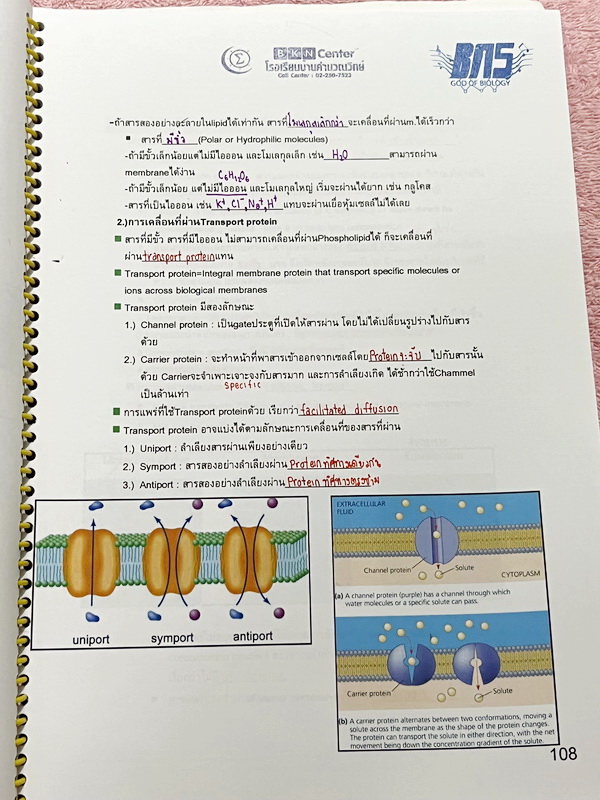 BKN Center
โรงเรียนบ้านคำนวณวิทย์
Call Center : 02-250-7523
BNS
GOD OF BIOLOGY
-ถ้าสารสองอย่างละลายในlipidได้เท่ากัน สารที่โมเลกุลเล็กกว่า จะเคลื่อนที่ผ่านm.ได้เร็วกว่า
สารที่ มีขั้ว (Polar or Hydrophilic molecules)
-ถ้ามีขั้วเล็กน้อยแต่ไม่มีไอออน และโมเลกุลเล็ก เช่น H2O สามารถผ่าน
membraneได้ง่าน
C6H12O6
-ถ้ามีขั้วเล็กน้อย แต่ไม่มีไอออน และโมเลกุลใหญ่ เริ่มจะผ่านได้ยาก เช่น กลูโคส
-สารที่เป็นไอออน เช่น K+, Cl-, Na+, H+ แทบจะผ่านเยื่อหุ้มเซลล์ไม่ได้เลย
2.)การเคลื่อนที่ผ่านTransport protein
สารที่มีขั้ว สารที่มีไอออน ไม่สามารถเคลื่อนที่ผ่านPhospholipidได้ ก็จะเคลื่อนที่
ผ่านtransport proteinแทน
Transport protein=Integral membrane protein that transport specific molecules or
ions across biological membranes
Transport protein มีสองลักษณะ
1.) Channel protein : เป็นgateประตูที่เปิดให้สารผ่าน โดยไม่ได้เปลี่ยนรูปร่างไปกับสาร
ด้วย
2.) Carrier protein : จะทำหน้าที่พาสารเข้าออกจากเซลล์โดยProteinจะจับ ไปกับสารนั้น
ด้วย Carrierจะจำเพาะเจาะจงกับสารมาก และการลำเลียงเกิด ได้ช้ากว่าใช้Chammel
specific
เป็นล้านเท่า
การแพร่ที่ใช้Transport proteinด้วย เรียกว่าfacilitated diffusion
Transport protein อาจแบ่งได้ตามลักษณะการเคลื่อนที่ของสารที่ผ่าน
1.) Uniport : ลำเลียงสารผ่านเพียงอย่างเดียว
2.) Symport : สารสองอย่างลำเลียงผ่าน Proteinทิศทางเดียวกัน
3.) Antiport : สารสองอย่างลำเลียงผ่าน Proteinทิศทางตรงข้าม
uniport symport antiport
EXTRACELLULAR
FLUID
Channel protein
Solute
CYTOPLASM
(a) A channel protein (purple) has a channel through which
water molecules or a specific solute can pass.
Carrier protein
Solute
(b) A carrier protein alternates between two conformations, moving a
solute across the membrane as the shape of the protein changes.
The protein can transport the solute in either direction, with the net
movement being down the concentration gradient of the solute.
108